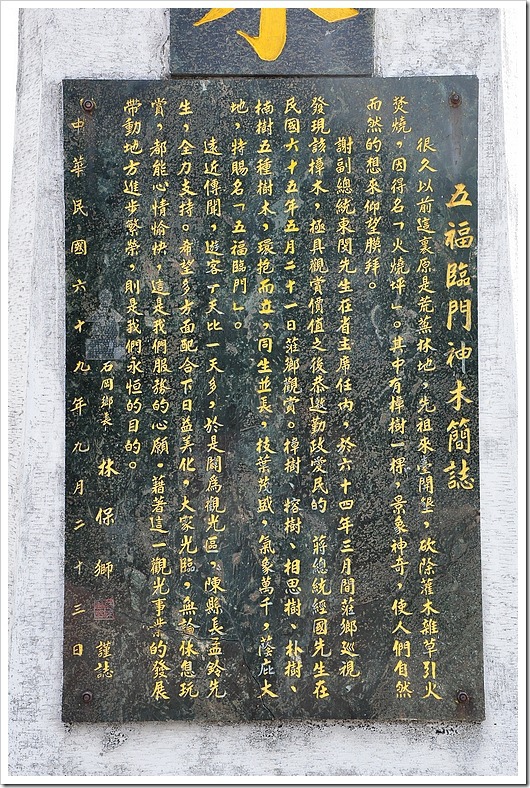 木
五福臨門神木簡誌
很久以前這裏原是荒蕪林地，先祖來臺開墾，砍除灌木雜草引火
焚燒，因得名「火燒坪」。其中有樟樹一棵，景象神奇，使人們自然
而然的想來仰望膜拜。
謝副總統東閔先生在省主席任內，於六十四年三月間蒞鄉巡視，
發現該樟木，極具觀賞價值之後恭邀勤政愛民的 蔣總統經國先生在
民國六十五年五月二十一日蒞鄉觀賞。樟樹、榕樹、相思樹、朴樹、
楠樹五種樹木，環抱而立，同生並長，枝葉茂盛，氣象萬千，蔭庇大
地，特賜名「五福臨門」。
遠近傳聞，遊客一天比一天多，於是闢為觀光區，陳縣長孟鈴先
生，全力支持。希望多方面配合下日益美化，大家光臨，無論休息玩
賞，都能心情愉快，這是我們服務的心願。藉著這一觀光事業的發展
帶動地方進步繁榮，則是我們永恒的目的。
石岡鄉長 林保獅 謹誌
中華民國六十九年九月二十三日